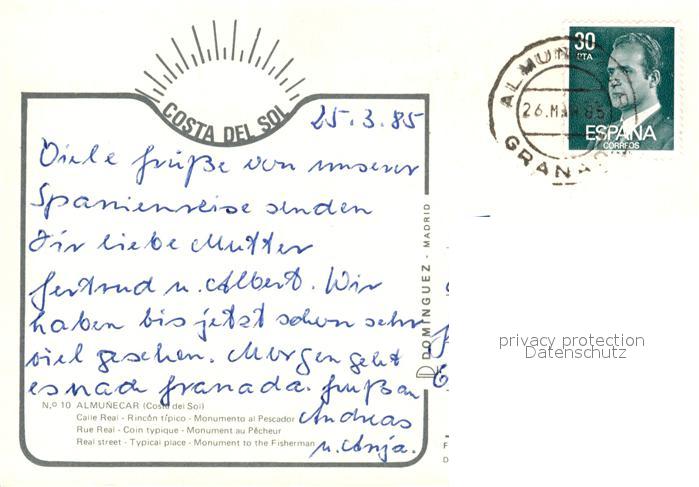 COSTA DEL SOL
25.3.85
Viele Grüße von unserer
Spanienreise senden
Dir liebe Mutter
Gertrud u. Albert. Wir
haben bis jetzt schon sehr
viel gesehen. Morgen geht
es nach Granada. Gruß an
Andreas
u. Anja.
N.º 10 ALMUÑECAR (Costa del Sol)
Calle Real - Rincón típico - Monumento al Pescador
Rue Real - Coin typique - Monument au Pêcheur
Real street - Typical place - Monument to the Fisherman
DOMINGUEZ - MADRID
30
PTA
ESPAÑA
CORREOS
26.MAR.85
GRANADA
privacy protection
Datenschutz